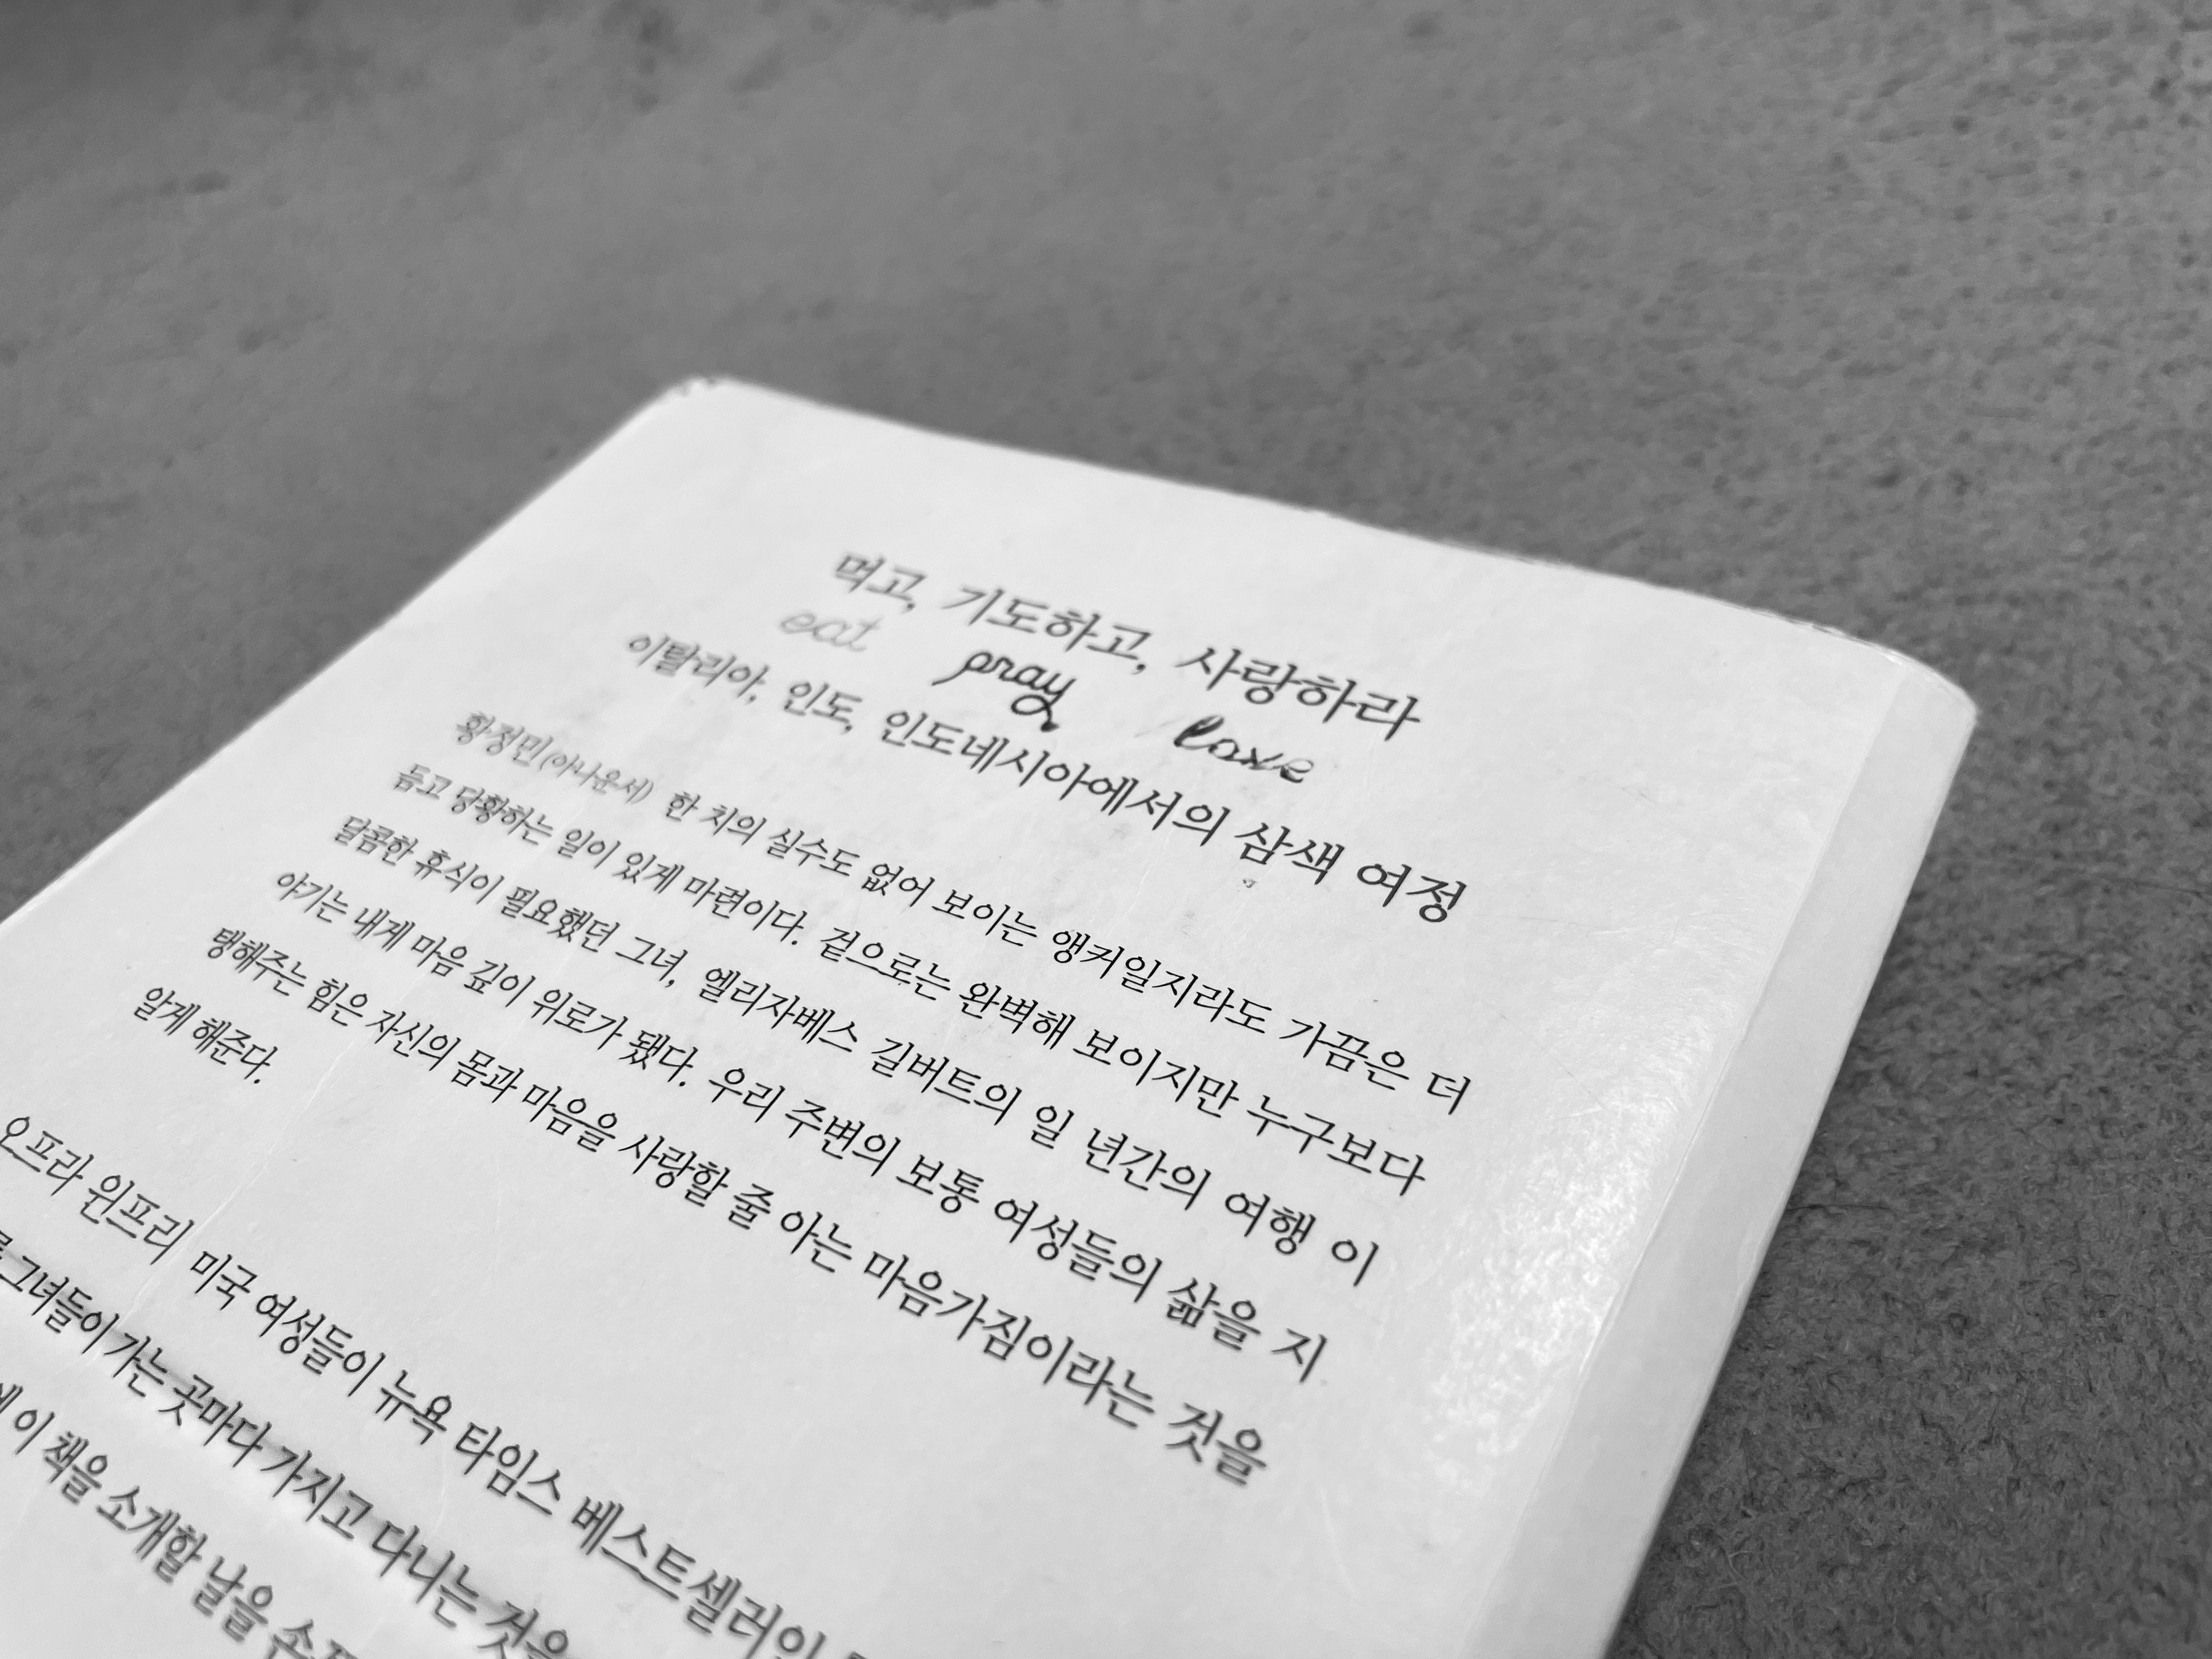 먹고, 기도하고, 사랑하라
eat pray love
이탈리아, 인도, 인도네시아에서의 삼색 여정
황정민(아나운서) 한 치의 실수도 없어 보이는 앵커일지라도 가끔은 더
듬고 당황하는 일이 있게 마련이다. 겉으로는 완벽해 보이지만 누구보다
달콤한 휴식이 필요했던 그녀, 엘리자베스 길버트의 일 년간의 여행 이
야기는 내게 마음 깊이 위로가 됐다. 우리 주변의 보통 여성들의 삶을 지
탱해주는 힘은 자신의 몸과 마음을 사랑할 줄 아는 마음가짐이라는 것을
알게 해준다.
오프라 윈프리 미국 여성들이 뉴욕 타임스 베스트셀러인
그녀들이 가는 곳마다 가지고 다니는 것을
이 책을 소개할 날을